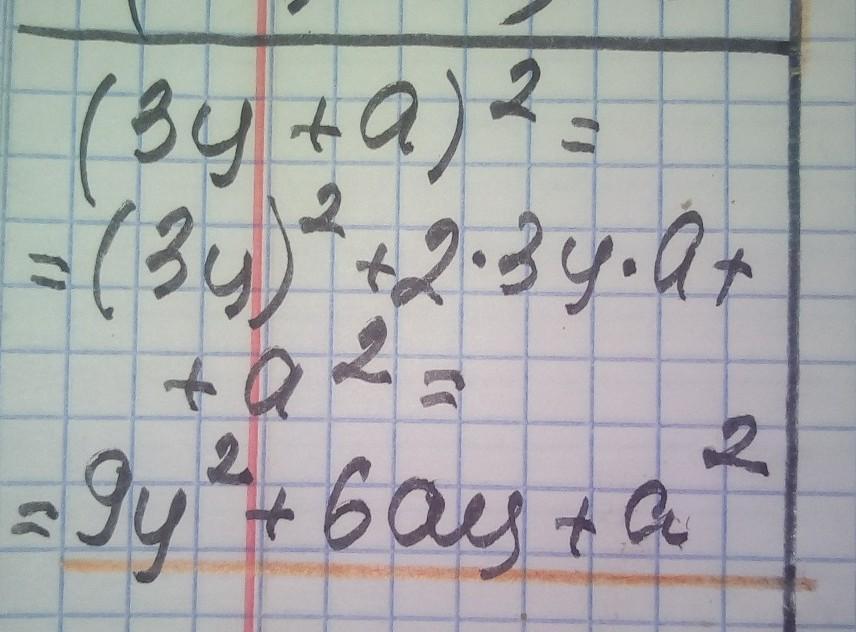 (3y + a)² =
= (3y)² + 2·3y·a +
+ a² =
= 9y² + 6ay + a²